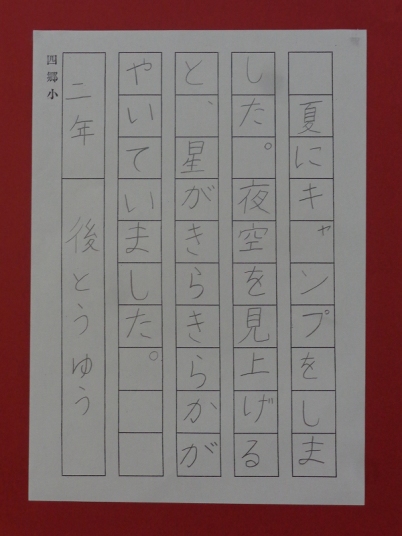 夏にキャンプをしま
した。夜空を見上げる
と、星がきらきらかが
やいていました。
二年 後とうゆう
四郷小